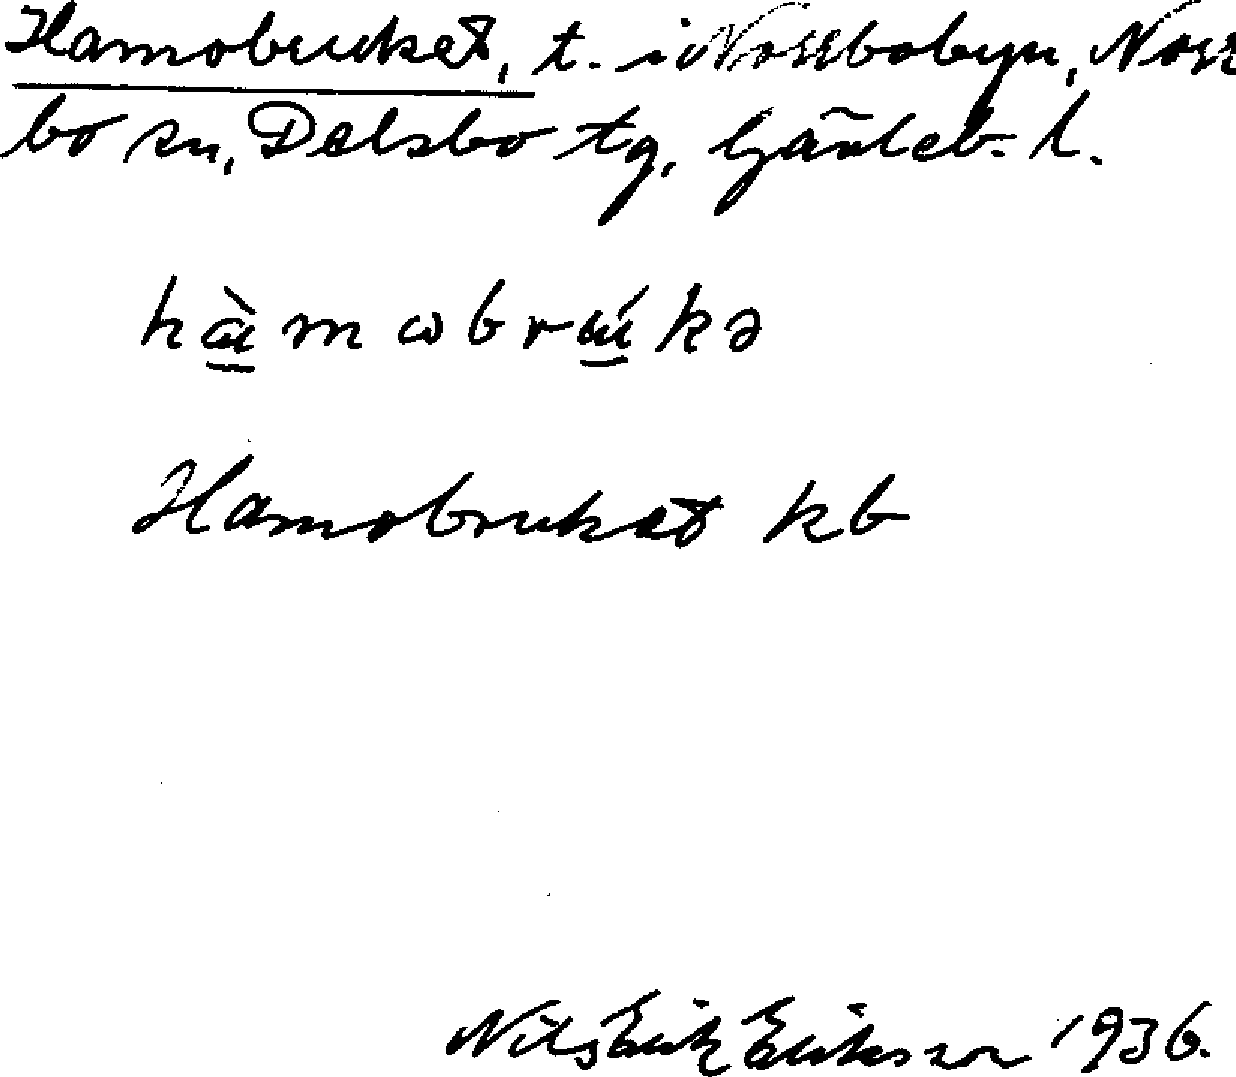 Hamobruket, t. i Norrbobyn, Norr
bo sn, Delsbo tg, Gävleb. l.
hàmωbrúkə
Hamobruket kb
Nils Erik Eriksson 1936.